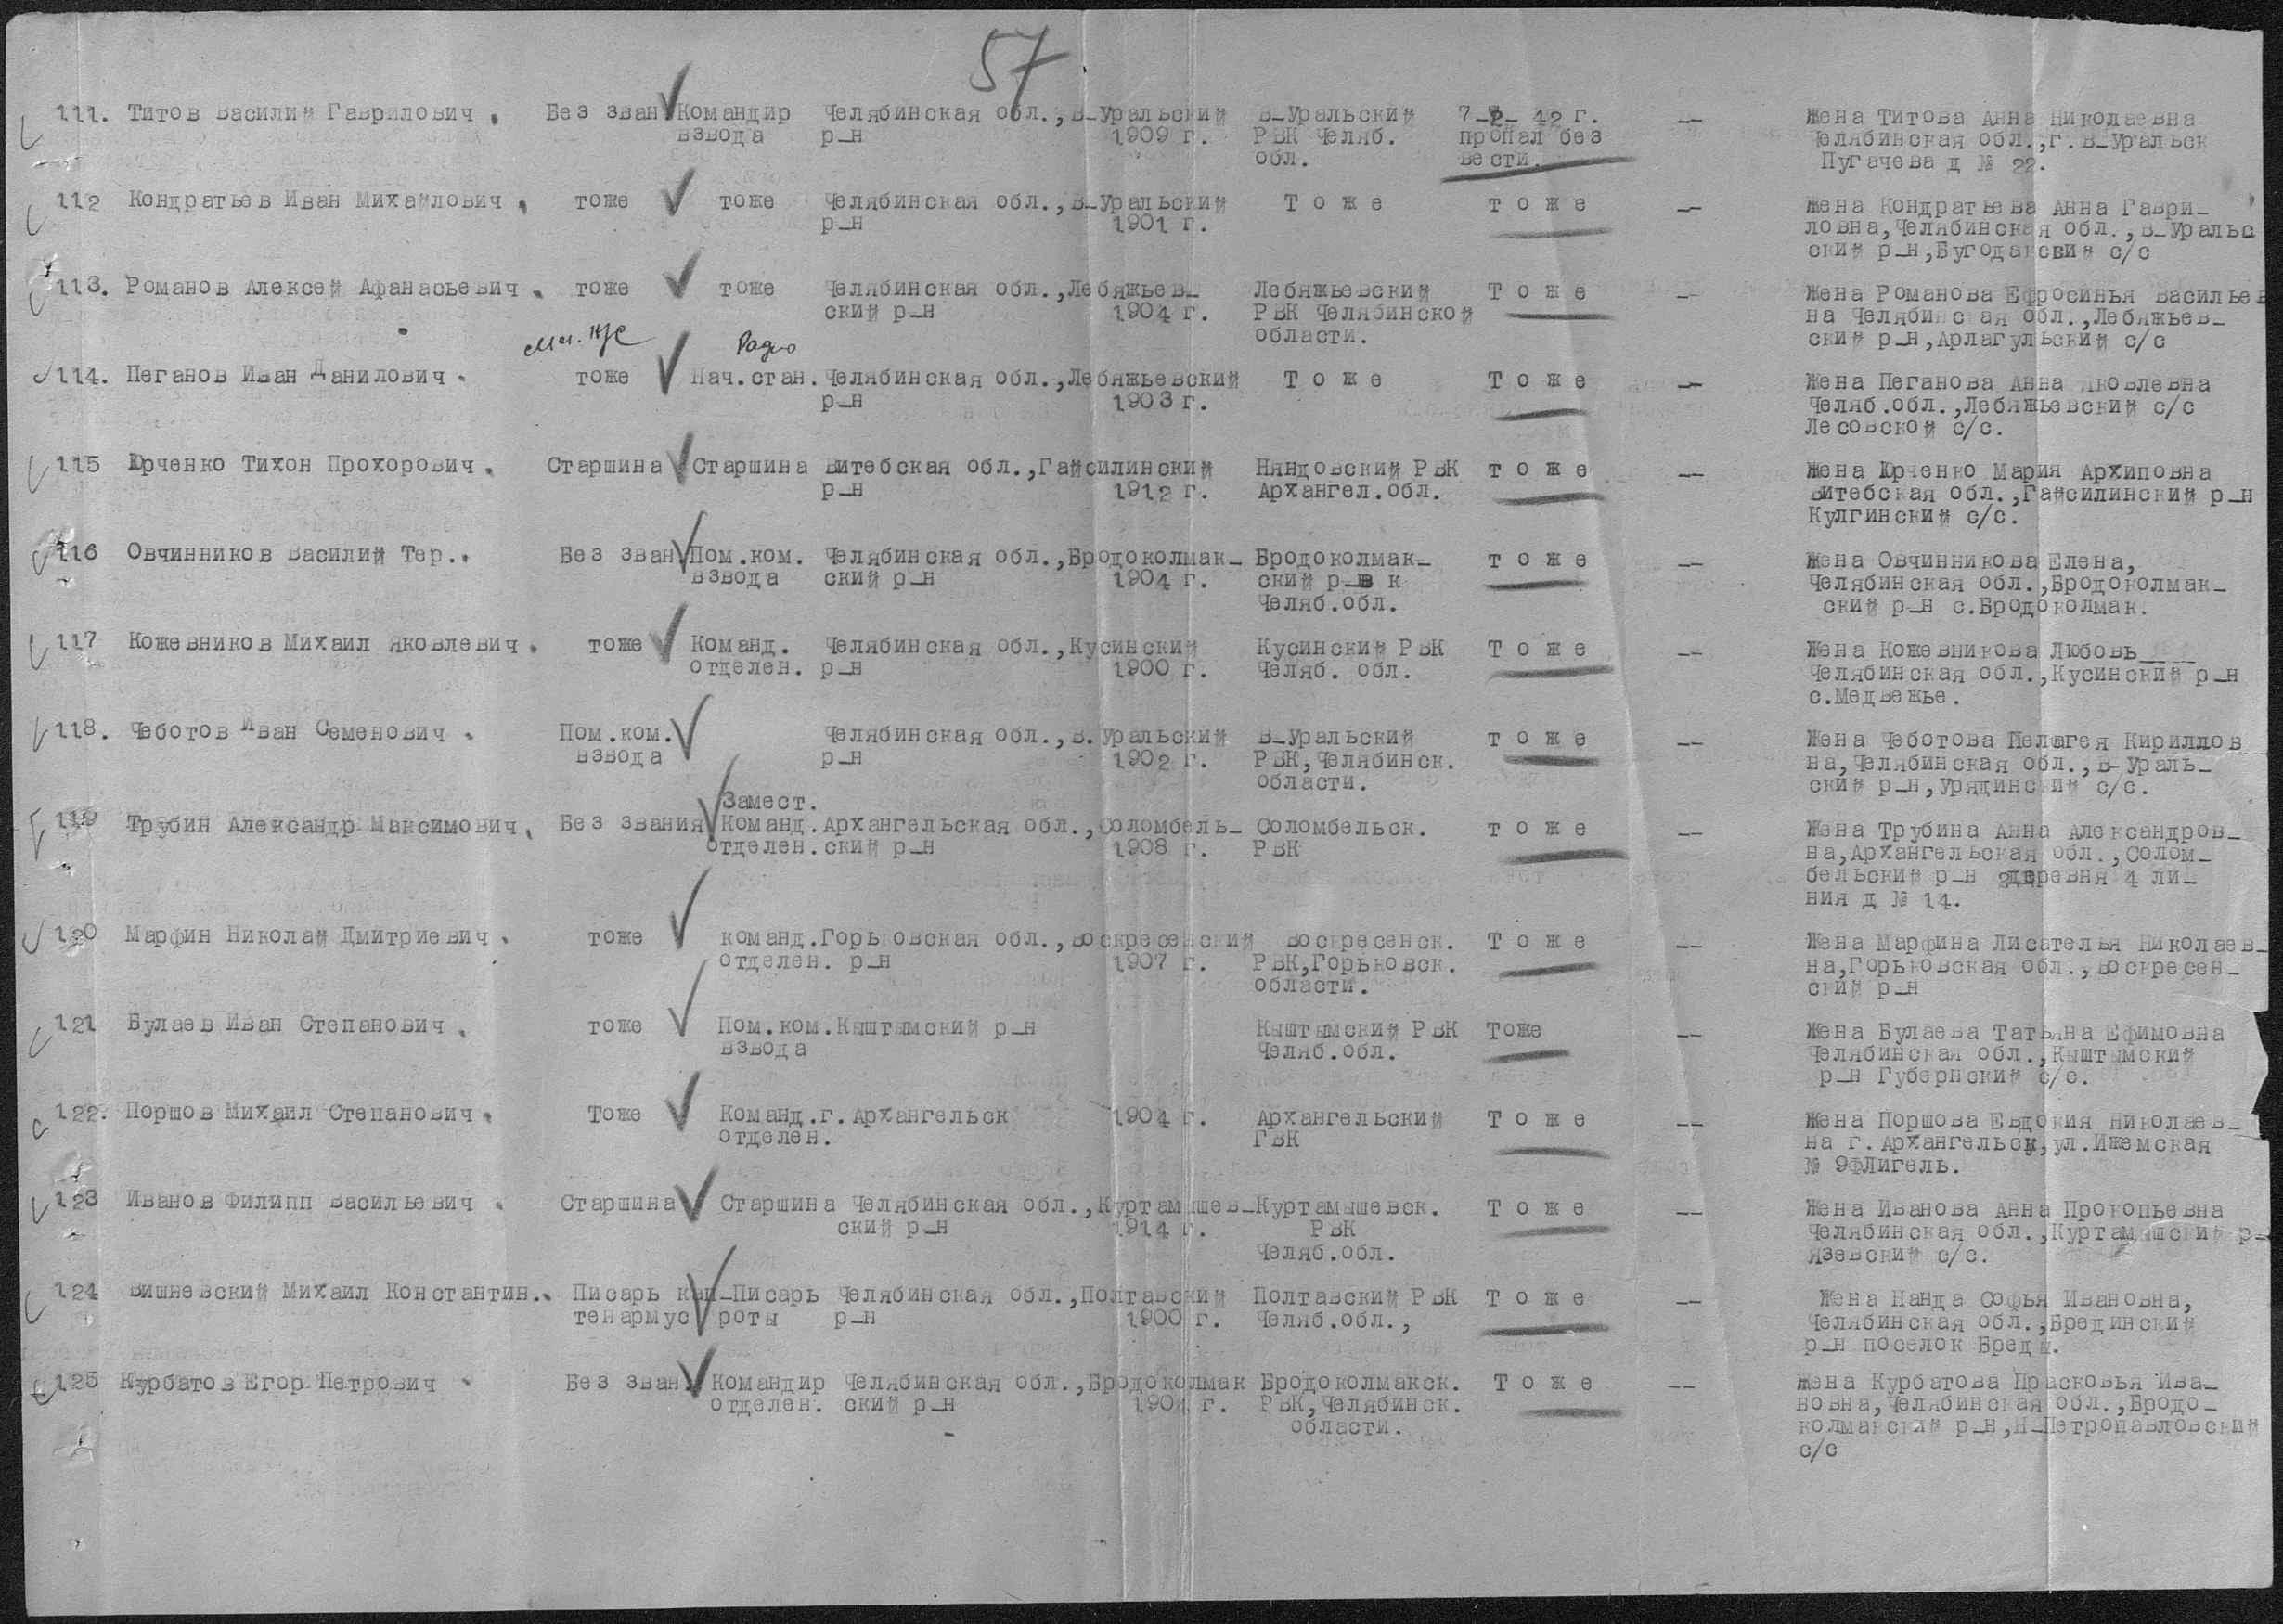 57
111. Титов Василий Гаврилович. Без зван Командир Челябинская обл., В_Уральский В_Уральский 7_2_ 42 г. — Жена Титова Анна Николаевна
взвода р_н 1909 г. РВК Челяб. пропал без Челябинская обл., г. В_Уральск
обл. вести. Пугачева д № 22.
112 Кондратьев Иван Михайлович. тоже тоже Челябинская обл., В_Уральский Тоже тоже — Жена Кондратьева Анна Гаври_
р_н 1901 г. ловна, Челябинская обл., В_Уральс
ский р_н, с/с
113. Романов Алексей Афанасьевич. тоже тоже Челябинская обл., Лебяжьев_ Лебяжьевский Тоже — Жена Романова Ефросинья Васильев
ский р_н 1904 г. РВК Челябинской на Челябинская обл., Лебяжьев_
области. ский р_н, Арлагульский с/с
Радио
114. Пеганов Иван Данилович. тоже Нач.стан. Челябинская обл., Лебяжьевский Тоже Тоже — Жена Пеганова Анна Яковлевна
р_н 1903 г. Челяб.обл., Лебяжьевский с/с
Лесовской с/с.
115 Юрченко Тихон Прохорович. Старшина Старшина Витебская обл., Гайсилинский Няндовский РВК тоже — Жена Юрченко Мария Архиповна
р_н 1912 г. Архангел.обл. Витебская обл., Гайсилинский р_н
Кулгинский с/с.
116 Овчинников Василий Тер.. Без зван Пом.ком. Челябинская обл., Бродоколмак_ Бродоколмак_ тоже — Жена Овчинникова Елена,
взвода ский р_н 1904 г. ский р_в к Челябинская обл., Бродоколмак_
Челяб.обл. ский р_н с.Бродоколмак.
117 Кожевников Михаил Яковлевич. тоже Команд. Челябинская обл., Кусинский Кусинский РВК Тоже — Жена Кожевникова Любовь
отделен. р_н 1900 г. Челяб. обл. Челябинская обл., Кусинский р_н
с.Медвежье.
118. Чеботов Иван Семенович. Пом.ком. Челябинская обл., В.Уральский В_Уральский тоже — Жена Чеботова Пелагея Кириллов
взвода р_н 1902 г. РВК, Челябинск. на, Челябинская обл., В-Ураль_
области. ский р_н, Урядинский с/с.
Замест.
119 Трубин Александр Максимович. Без звания Команд. Архангельская обл., Соломбель_ Соломбельск. тоже — Жена Трубина Анна Александров_
отделен. ский р_н 1908 г. РВК на, Архангельская обл., Солом_
бельский р_н деревня 4 ли_
ния д № 14.
120 Марфин Николай Дмитриевич. тоже команд. Горьковская обл., Воскресенский Воскресенск. Тоже — Жена Марфина Лисателья Николаев_
отделен. р_н 1907 г. РВК, Горьковск. на, Горьковская обл., Воскресен_
области. ский р_н
121 Булаев Иван Степанович. тоже Пом.ком. Кыштымский р_н Кыштымский РВК Тоже — Жена Булаева Татьяна Ефимовна
взвода Челяб.обл. Челябинская обл., Кыштымский
р_н Губернский с/с.
122. Поршов Михаил Степанович. Тоже Команд. г. Архангельск 1904 г. Архангельский Тоже — Жена Поршова Евдокия Николаев_
отделен. ГВК на г. Архангельск, ул.Ижемская
№ 9 Флигель.
123 Иванов Филипп Васильевич. Старшина Старшина Челябинская обл., Куртамышев_ Куртамышевск. Тоже — Жена Иванова Анна Прокопьевна
ский р_н 1914 г. РВК Челябинская обл., Куртамышский р_
Челяб.обл. Язевский с/с.
124 Вишневский Михаил Константин.. Писарь кап_ Писарь Челябинская обл., Полтавский Полтавский РВК Тоже — Жена Нанда Софья Ивановна,
тенармус роты р_н 1900 г. Челяб.обл., Челябинская обл., Брединский
р_н поселок Бреды.
125 Курбатов Егор Петрович. Без зван. Командир Челябинская обл., Бродоколмак Бродоколмакск. Тоже — Жена Курбатова Прасковья Ива_
отделен. ский р_н г. РВК, Челябинск. новна, Челябинская обл., Бродо_
области. колмакский р_н, Н_Петропавловский
с/с